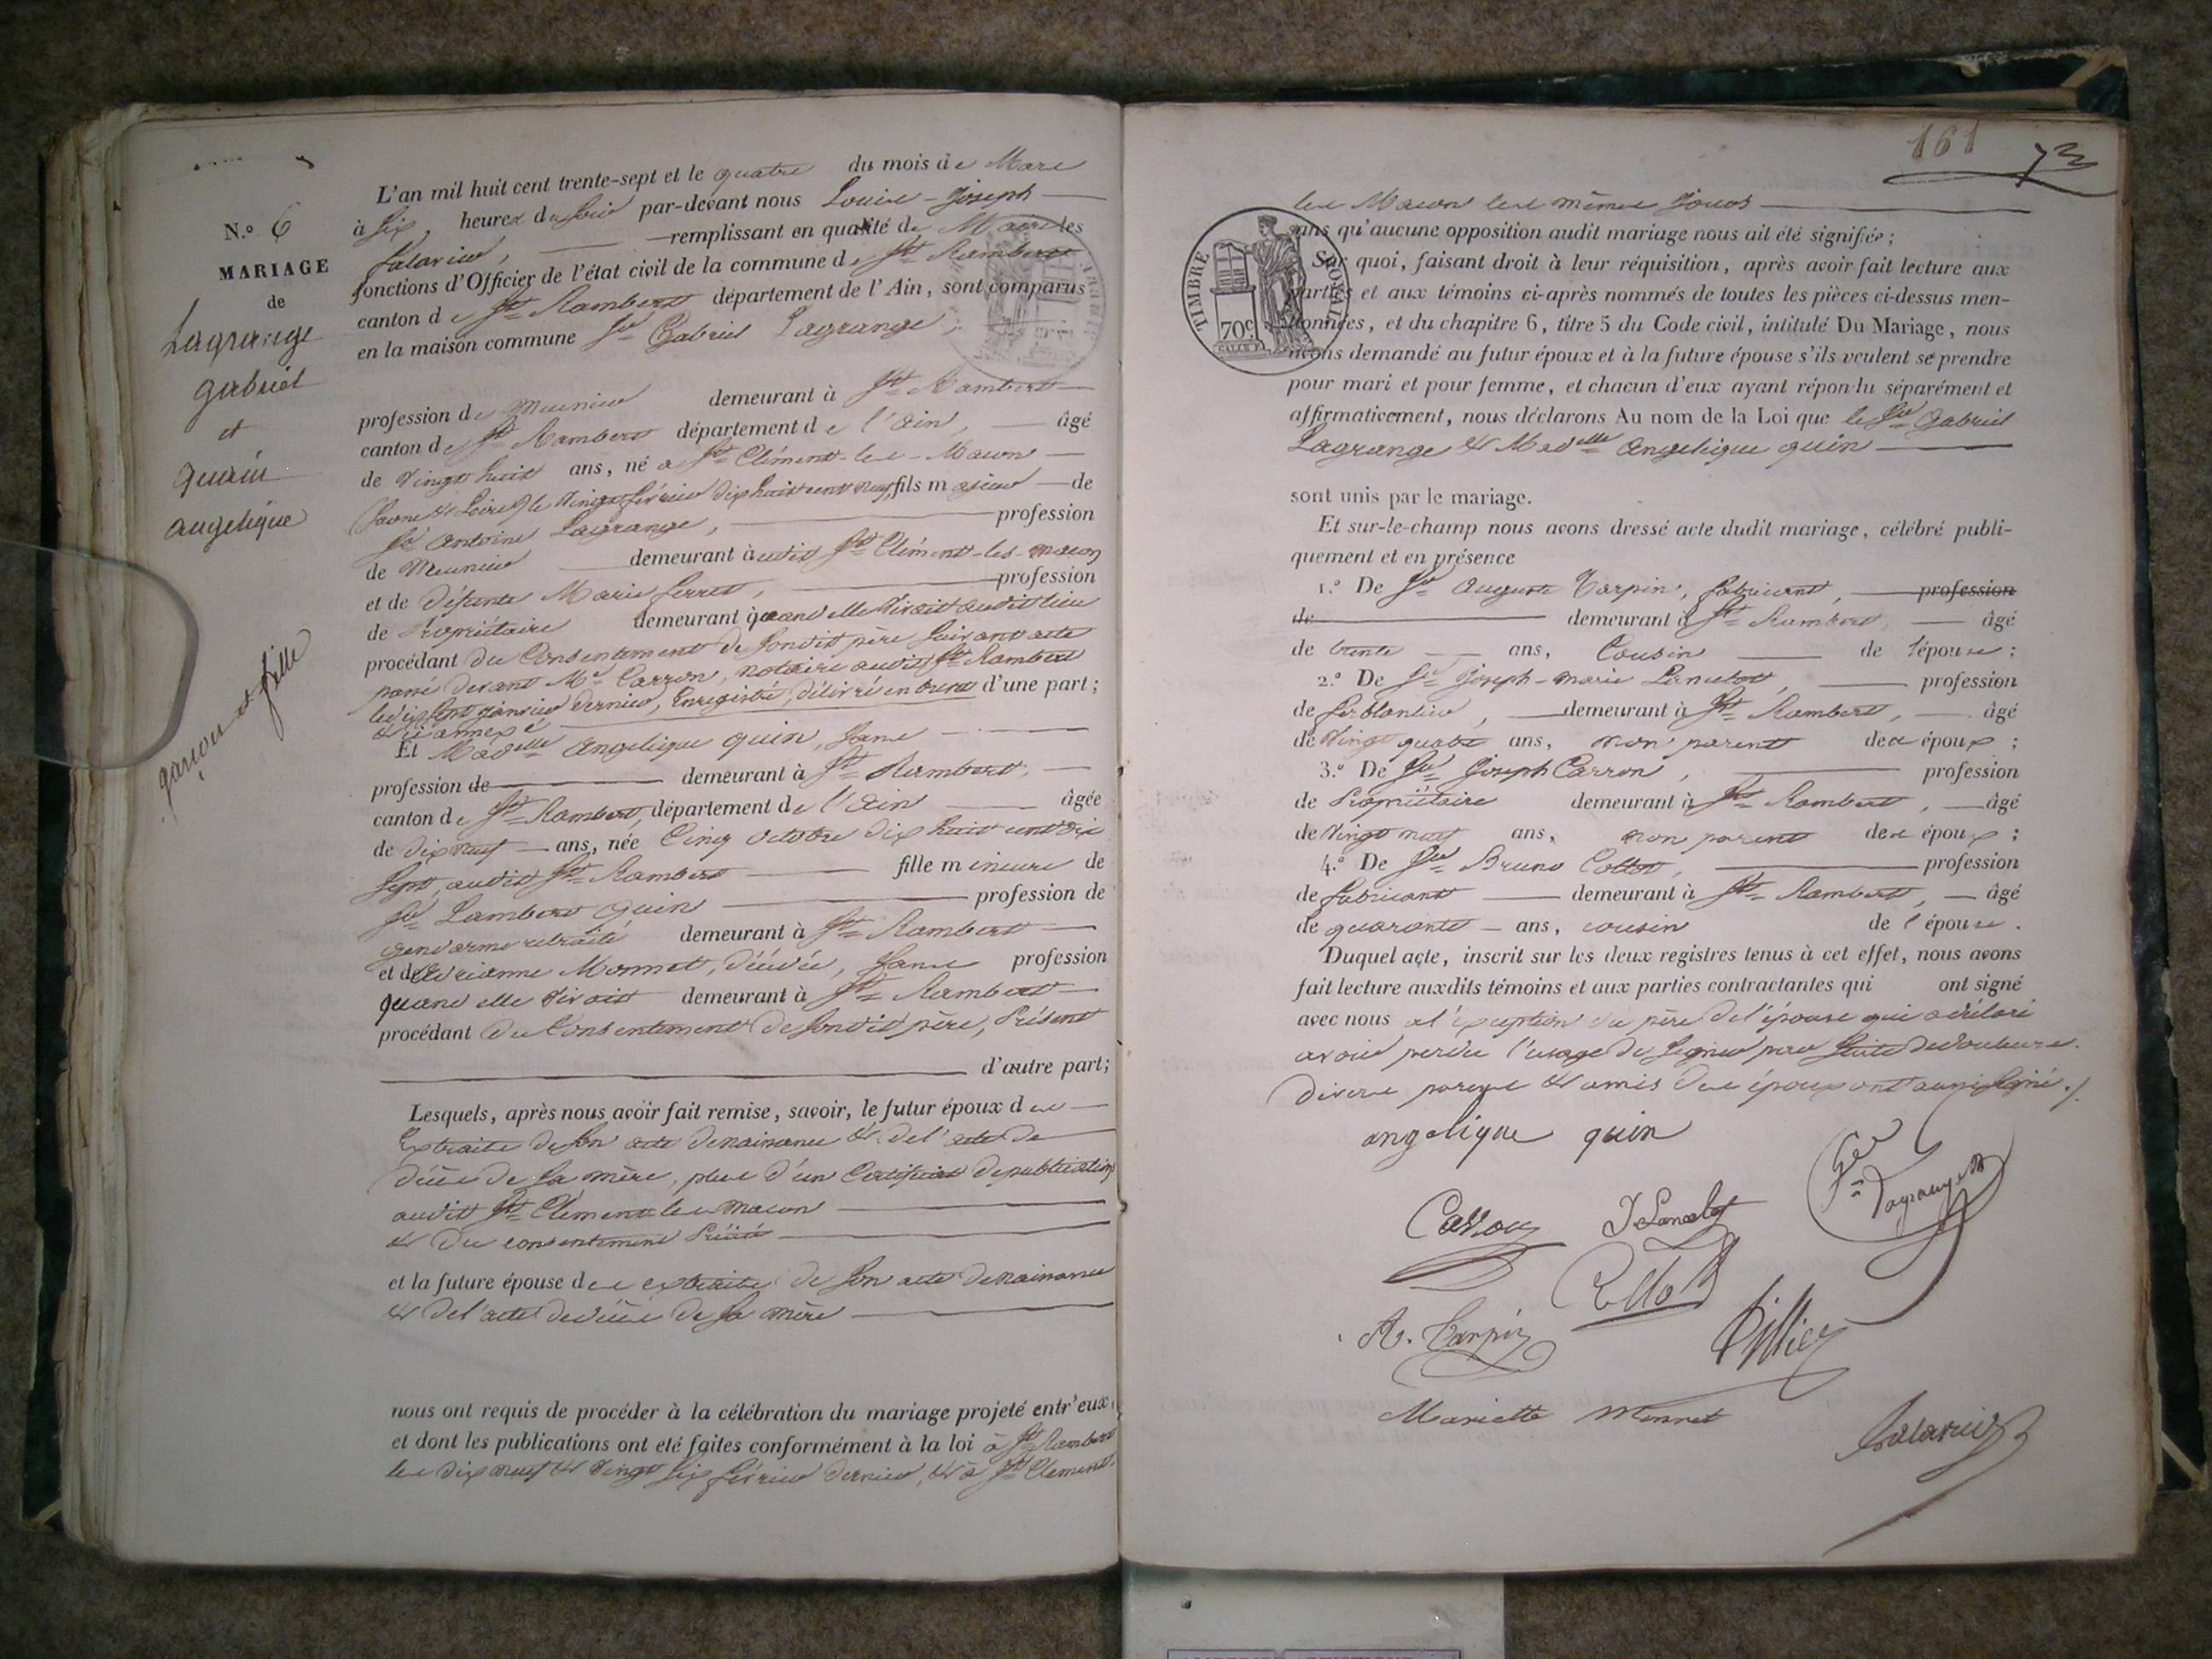 N.o 6
MARIAGE
de
Lagrange
gabriel
et
quin
angelique
garcon et fille
L'an mil huit cent trente-sept et le quatre du mois de Mars
à Six heures du Soir par-devant nous Louis-Joseph
Salavier, remplissant en qualité de Maire les
fonctions d'Officier de l'état civil de la commune de St Rambert
canton de St Rambert département de l'Ain, sont comparus
en la maison commune Sr Gabriel Lagrange,
profession de Meunier demeurant à St Rambert
canton de St Rambert département de l'ain, âgé
de vingt huit ans, né à St Clément-les-Macon
(Saone & Loire) le vingt février dix huit cent neuf fils majeur de
Sr Antoine Lagrange, profession
de Meunier demeurant audit St Clément-les-macon
et de défunte Marie Ferret, profession
de Propriétaire demeurant quand elle vivait audit lieu
procédant du Consentement de Sondit père Suivant acte
passé devant Me Carron, notaire audit St Rambert
le dix Sept janvier dernier, Enregistré, délivré en brevet d'une part;
& ci annexé
Et Madelle angelique quin, Sans
profession de demeurant à St Rambert,
canton de St Rambert, département de l'ain âgée
de dix neuf ans, née Cinq octobre dix huit cent dix
Sept, audit St Rambert fille mineure de
Sr Lambert quin profession de
gendarme retraité demeurant à St Rambert
et de Monnet, décédée, Sans profession
quand elle vivait demeurant à St Rambert
procédant du Consentement de Sondit père, Présent
d'autre part;
Lesquels, après nous avoir fait remise, savoir, le futur époux des
Extraits de Son acte de naissance & de l'acte de
décès de Sa mère, plus d'un Certificat de publication
audit St Clément les macon
& du consentement Précité
et la future épouse des extraits de Son acte de naissance
& de l'acte de décès de Sa mère
nous ont requis de procéder à la célébration du mariage projeté entr'eux,
et dont les publications ont eté faites conformément à la loi à St Rambert
les dix neuf & vingt Six février dernier, & à St Clement-
161
72
les Macon les mêmes Jours
TIMBRE ROYAL
70c
sans qu'aucune opposition audit mariage nous ait été signifiée;
Sur quoi, faisant droit à leur réquisition, après avoir fait lecture aux
parties et aux témoins ci-après nommés de toutes les pièces ci-dessus men-
tionnées, et du chapitre 6, titre 5 du Code civil, intitulé Du Mariage, nous
avons demandé au futur époux et à la future épouse s'ils veulent se prendre
pour mari et pour femme, et chacun d'eux ayant répondu séparément et
affirmativement, nous déclarons Au nom de la Loi que le Sr Gabriel
Lagrange & Madelle Angelique quin
sont unis par le mariage.
Et sur-le-champ nous avons dressé acte dudit mariage, célébré publi-
quement et en présence
1.o De Sr Auguste Tarpin, fabricant, profession
de demeurant à St Rambert, âgé
de trente ans, Cousin de l'épouse;
2.o De Sr Joseph-marie Lancelot, profession
de ferblantier, demeurant à St Rambert, âgé
de vingt quatre ans, non parent des époux;
3.o De Sr Joseph Carron, profession
de Propriétaire demeurant à St Rambert, âgé
de vingt neuf ans, non parent des époux;
4.o De Sr Bruno Collot, profession
de fabricant demeurant à St Rambert, âgé
de quarante ans, cousin de l'épouse.
Duquel acte, inscrit sur les deux registres tenus à cet effet, nous avons
fait lecture auxdits témoins et aux parties contractantes qui ont signé
avec nous à l'exception du père de l'épouse qui a déclaré
avoir perdu l'usage de Signer par Suite de douleurs.
divers parens & amis des époux ont aussi Signé./.
angelique quin
Gel
Lagrange
Carron
J Lancelot
Collot
A. Tarpin
Tillier
Mariette Monnet
Salavier